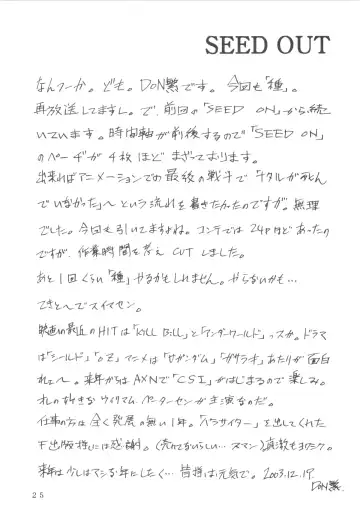 SEED OUT
なんつーか。ども。DON繁です。今回も「種」。
再放送してますし。で、前回の「SEED ON」から続
いています。時間軸が前後するので「SEED ON」
のページが4枚ほどまざっております。
出来ればアニメーションでの最後の戦子で「ナタルが死んで
いなかった」〜という流れを書きたかったのですが。無理
でした。今回も引いてますよね。コンテでは24Pほどあったの
ですが、作業時間を考えCUTしました。
あと1回くらい「種」やるかもしれません。やらないかも…
てきと〜でスイマセン。
映画は最近のHITは「KILL BILL」と「アンダーワールド」ッスか。ドラマ
は「シールド」「OZ」アニメは「ガンダム」「ガサラキ」あたりが面白
れぇ〜。来年からはAXNで「CSI」がはじまるので楽しみ。
オレの好きなウィリアム・ピーターセンが主演なのだ。
仕事の方は全く発展の無い1年。「ベラサイター」を出してくれた
F出版様には感謝。(売れてないらしい…スマン)
来年は少しはマシな年にしたく…皆様は元気で。2003.12.17.
DON繁.
25